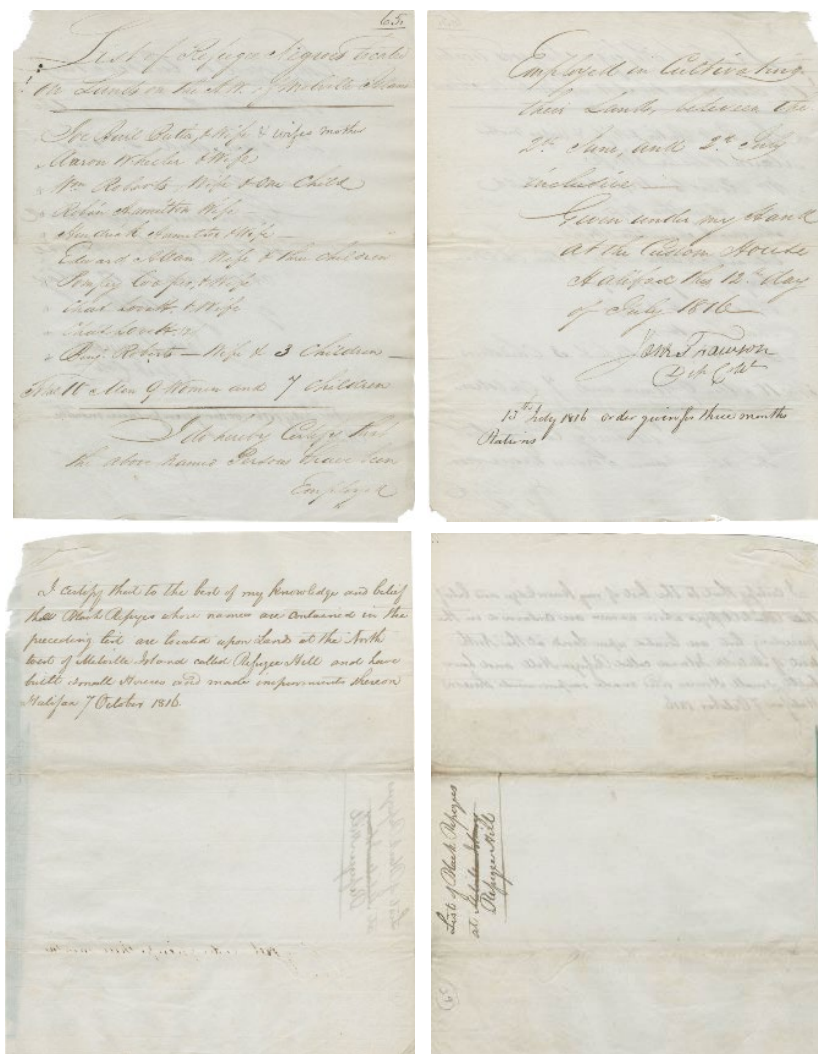 65.
List of Refugee Negroes located
on Lands on the N.W. of Melville Island
Wife & wifes mother
Aaron Wheeler & Wife
Wm Roberts, Wife & One Child
Robin Hamilton Wife
Hamilton & Wife
Edward Allan Wife & three Children
Pompey Cooper, & Wife
Chas Lovett & Wife
Chas Lovett
Benj. Roberts — Wife & 3 Children —
Men 9 Women and 7 Children
I do hereby Certify that
the above named Persons have been
Employed
Employed in Cultivating
their Lands, between the
2d June, and 2d July
inclusive. —
Given under my Hand
at the Custom House
Halifax this 12th day
of July 1816
13th July 1816 order given for three months
Rations
I certify that to the best of my knowledge and belief
the Black Refugees whose names are contained in the
preceding list are located upon Land at the North
West of Melville Island called Refugee Hill and have
built small Houses and made improvements thereon
Halifax 7 October 1816
List of Black Refugees
at
Refugee Hill